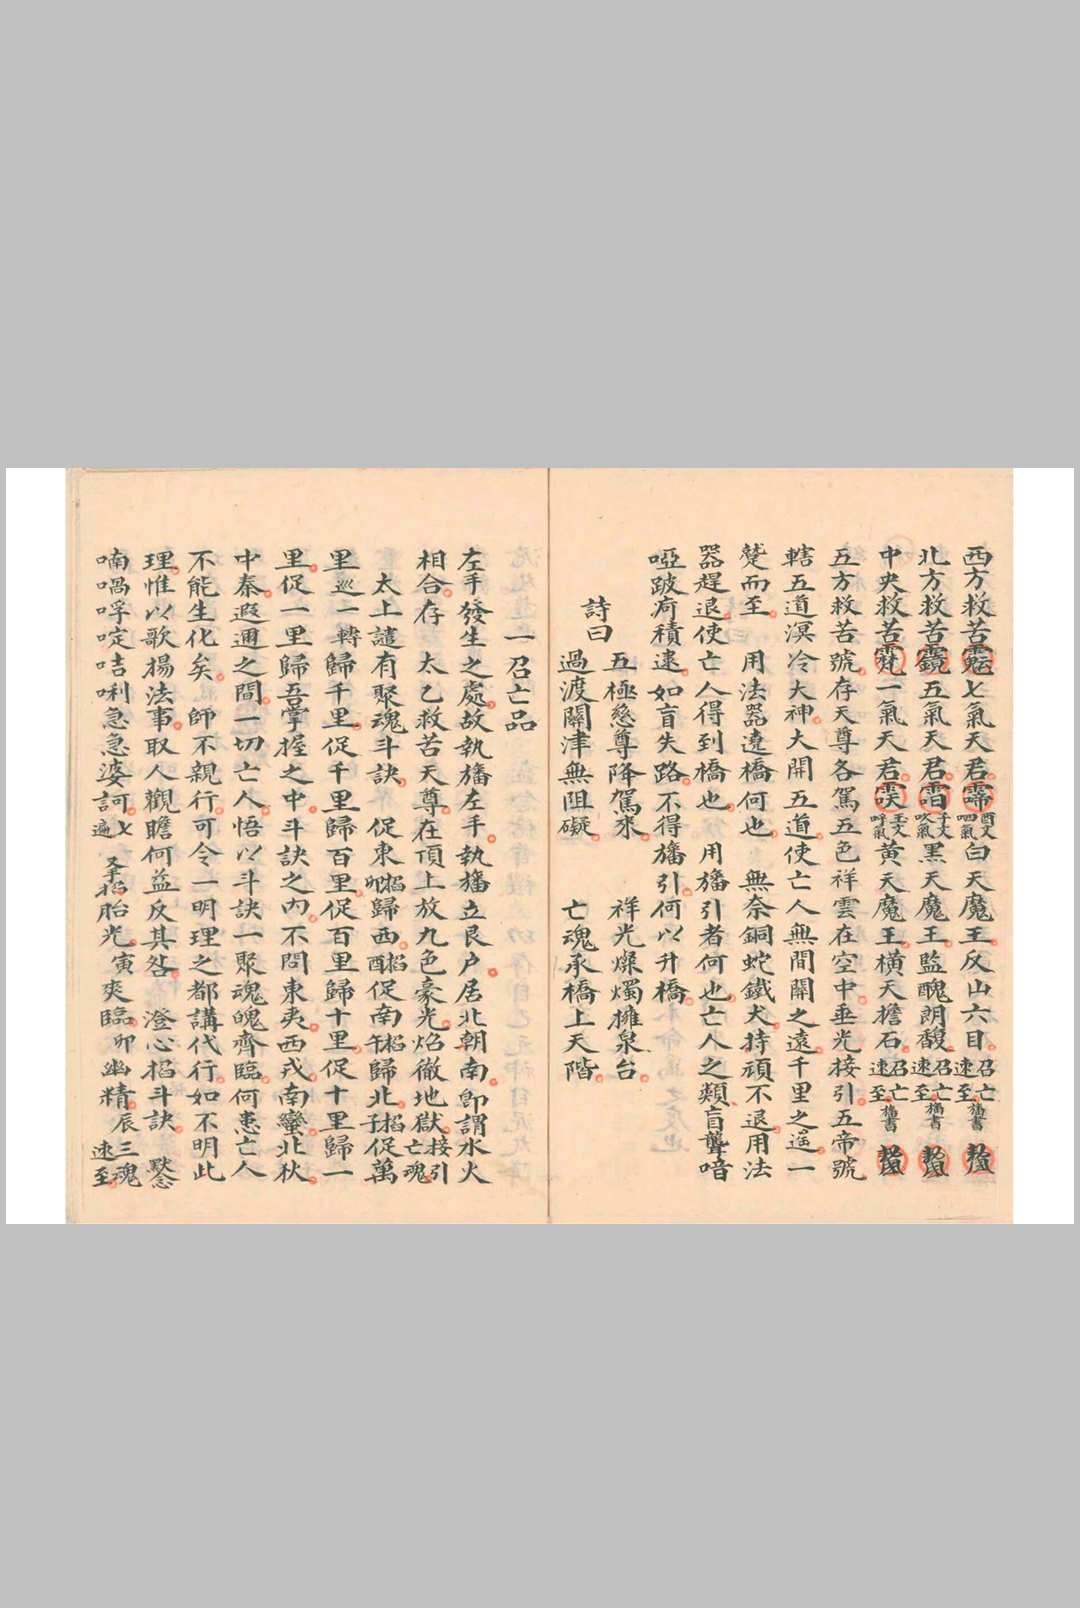 西方救苦七氣天君酉文呬氣白天魔王反山六目召亡速至旛書
北方救苦五氣天君子文吹氣黑天魔王監醜朗馥召亡速至旛書
中央救苦一氣天君玉文呼氣黃天魔王橫天擔石召亡速至旛書
五方救苦號存天尊各駕五色祥雲在空中垂光接引五帝號
轄五道溟冷大神大開五道使亡人無間關之遠千里之遙一
蹵而至　用法器遶橋何也無奈銅蛇鐵犬持頑不退用法
器趕退使亡人得到橋也用旛引者何也亡人之類盲聾喑
啞跛痾積逮如盲失路不得旛引何以升橋
詩曰
五極慈尊降駕來　祥光燦燭擁泉台
過渡關津無阻礙　亡魂承橋上天階
一召亡品
左手發生之處故執旛左手執旛立艮户居北朝南即謂水火
相合存　太乙救苦天尊在頂上放九色豪光焰徹地獄接引亡魂
太上譴有聚魂斗訣　促東掐卯歸西掐酉促南掐午歸北掐子促萬
里巡一轉歸千里促千里歸百里促百里歸十里促十里歸一
里促一里歸吾掌握之中斗訣之內不問東夷西戎南蠻北秋
中秦遐邇之間一切亡人悟以斗訣一聚魂魄齊臨何患亡人
不能生化矣　師不親行可令一明理之都講代行如不明此
理惟以歌揚法事取人觀瞻何益反其咎　澄心掐斗訣　默念
喃喎哹啶咭唎急急婆訶七遍　又手掐胎光寅爽臨卯幽精辰三魂速至